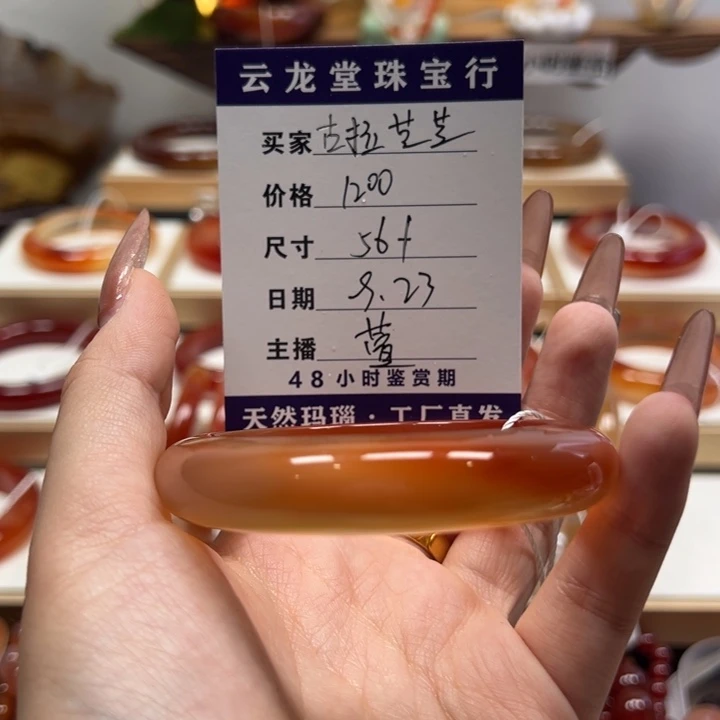 云龙堂珠宝行
买家 古拉芝芝
价格 1200
尺寸 56+
日期 9.23
主播 萱
48小时鉴赏期
天然玛瑙·工厂直发